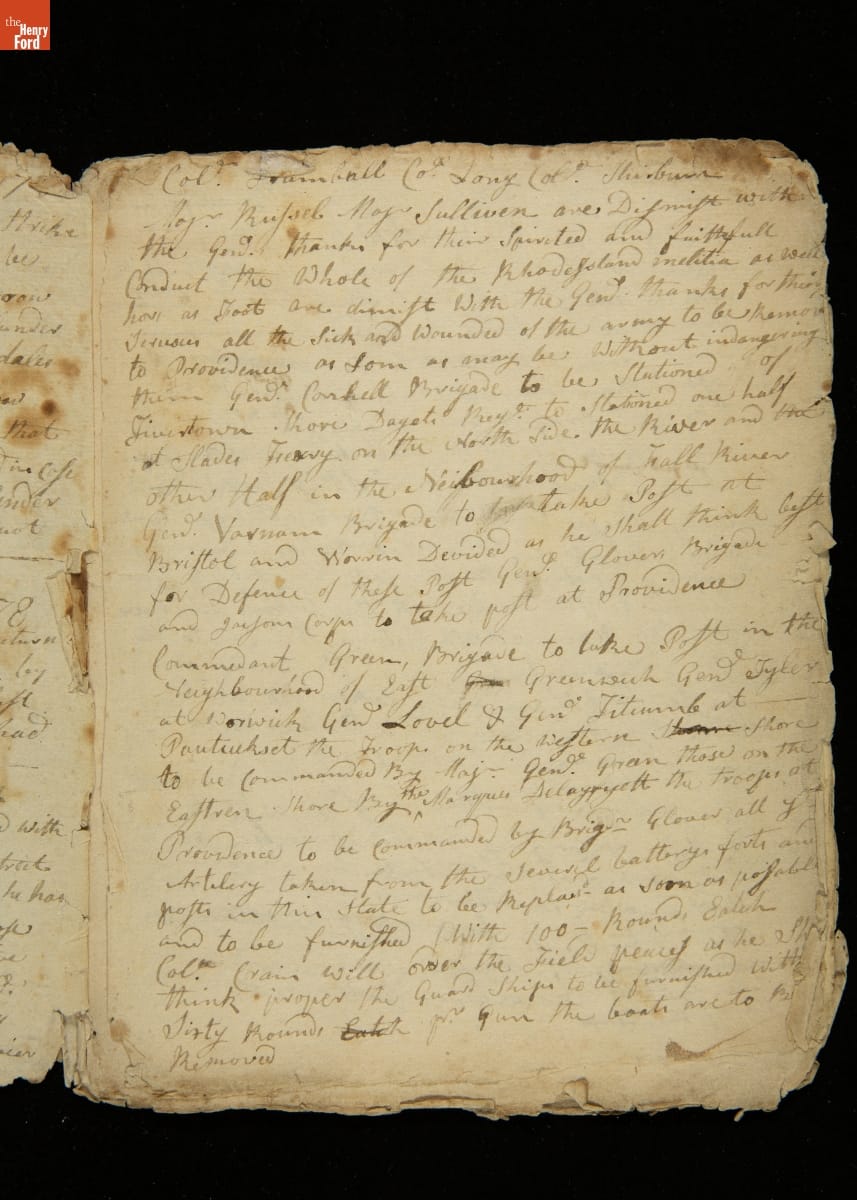 the
Henry
Ford
Col.ᵈ Trumball Co.ˡ Long Col.ᵈ Shirburn
Majʳ Russel Majʳ Sulliven are Dismist with
the Genˡ. thanks for their Spirited and faithfull
Conduct the Whole of the RhodeIsland melitia as well
hors as Foot are dimist With the Genˡ. thanks for their
Servues all the Sick and Wounded of the army to be Remov
to Providence as Soon as may be Without indangering
them Genˡ. Cornhell Brigade to be Stationed of
Tivertown Shore Dayets Regᵗ. to Stationed one half
at Slades Ferry on the North Side the River and the
other Half in the Neigbourhood of Fall River
Genˡ. Varnam Brigade to take Post at
Bristol and Worrin Devided as he Shall think best
for Defence of these Post Genˡ. Glovers Brigade
and Jacsons Corps to take post at Providence
Commedant Green, Brigade to take Post in the
Neighbourhood of East Greenwich Genˡ Tyler
at Worwick Genˡ Lovel & Genˡ Titcumb at
Pautukset the Troops on the Western Shore
to be Commanded By Majʳ Genˡ. Green those on the
Eastren Shore By the Marques Delayryett the troops at
Providence to be Commanded by Brigʳ Glover all yᵉ
Artilery taken from the Several batterys forts and
posts in this State to be Replaᵈ as soon as possable
and to be furnished With 100 - Rounds Eatch
Colⁿ Crain will over the Field peaces as he Sh
think proper the Guard Ships to be furnished With
Sixty Rounds Eatch pʳ Gun the boats are to Be
Removed
7
Strike
be
under
dales
that
in case
under
not
78
return
by
head
with
he has